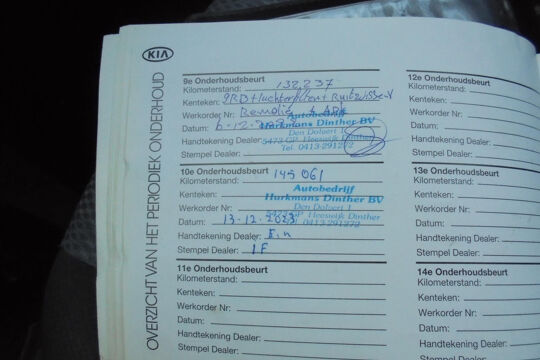 KIA
OVERZICHT VAN HET PERIODIEK ONDERHOUD
9e Onderhoudsbeurt
Kilometerstand: 132.237
Kenteken:
Werkorder Nr:
Datum: 6-12-
Handtekening Dealer:
Stempel Dealer:
Autobedrijf
Hurkmans Dinther BV
Den Dolvert 1
5473 GP Heeswijk Dinther
Tel. 0413-291272
10e Onderhoudsbeurt
Kilometerstand: 145 061
Kenteken:
Werkorder Nr:
Datum: 13-12-2023
Handtekening Dealer:
Stempel Dealer: 1F
Autobedrijf
Hurkmans Dinther BV
Den Dolvert 1
5473 GP Heeswijk Dinther
0413-291272
11e Onderhoudsbeurt
Kilometerstand:
Kenteken:
Werkorder Nr:
Datum:
Handtekening Dealer:
Stempel Dealer:
12e Onderhoudsbeurt
Kilometerstand:
Kenteken:
Werkorder Nr:
Datum:
Handtekening Dealer:
Stempel Dealer:
13e Onderhoudsbeurt
Kilometerstand:
Kenteken:
Werkorder Nr:
Datum:
Handtekening Dealer:
Stempel Dealer:
14e Onderhoudsbeurt
Kilometerstand:
Kenteken:
Werkorder Nr:
Datum:
Handtekening Dealer: